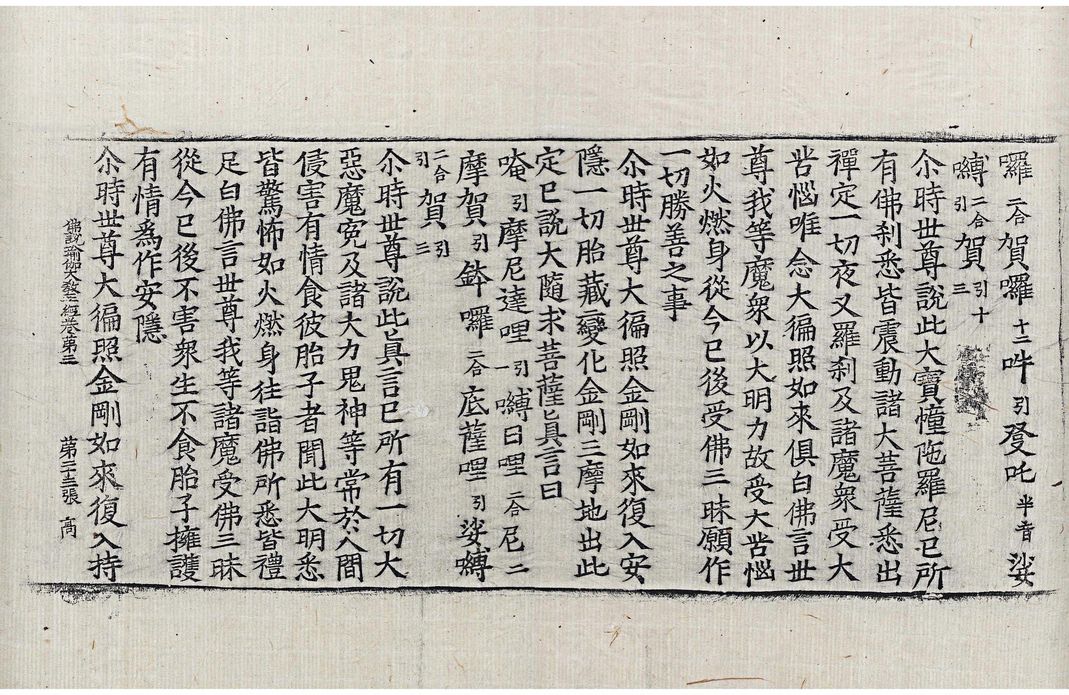 囉二合賀囉十二吽引登吒半音娑
嚩二合引賀引十三
尒時世尊說此大寶幢陁羅尼已所
有佛刹悉皆震動諸大菩薩悉出
禪定一切夜叉羅刹及諸魔衆受大
苦惱唯念大徧照如來俱白佛言世
尊我等魔衆以大明力故受大苦惱
如火燃身從今已後受佛三昧願作
一切勝善之事
尒時世尊大徧照金剛如來復入安
隱一切胎藏變化金剛三摩地出此
定已說大隨求菩薩眞言曰
唵引摩尼達哩引一嚩日哩二合尼二
摩賀引鉢囉二合底薩哩引娑嚩
二合引賀引三
尒時世尊說此眞言已所有一切大
惡魔寃及諸大力鬼神等常於人間
侵害有情食彼胎子者聞此大明悉
皆驚怖如火燃身往詣佛所悉皆禮
足白佛言世尊我等諸魔受佛三昧
從今已後不害衆生不食胎子擁護
有情為作安隱
佛說瑜伽大敎王經卷第三 第二十三張 高
尒時世尊大徧照金剛如來復入持